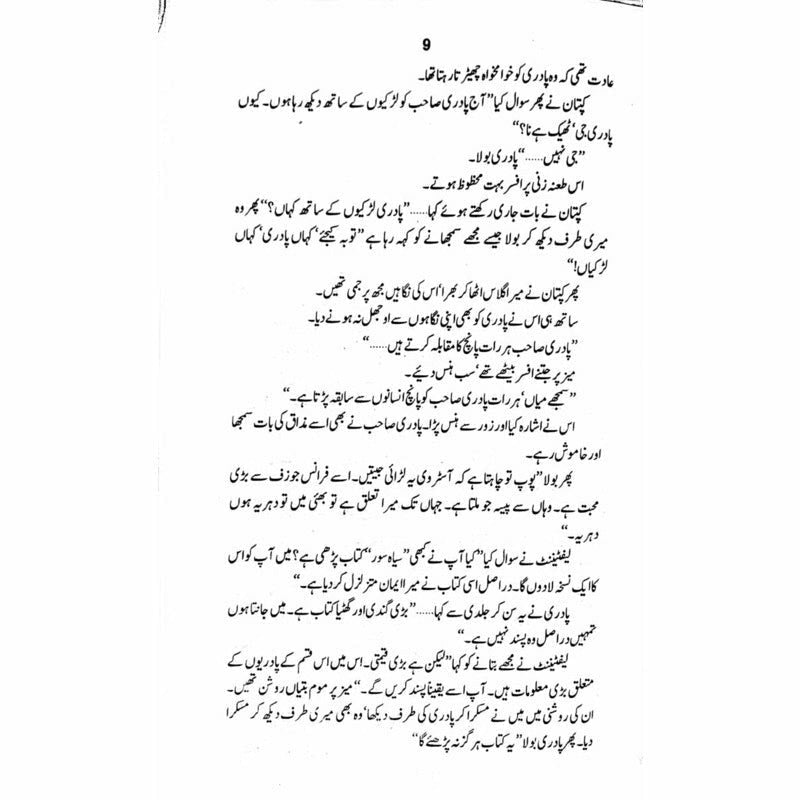 9
عادت تھی کہ وہ پادری کو خوامخواہ چھیڑتا رہتا تھا۔
کپتان نے پھر سوال کیا ’’آج پادری صاحب کو لڑکیوں کے ساتھ دیکھ رہا ہوں۔ کیوں
پادری جی‘ ٹھیک ہے نا؟‘‘
’’جی نہیں......‘‘ پادری بولا۔
اس طعنہ زنی پر افسر بہت محظوظ ہوتے۔
کپتان نے بات جاری رکھتے ہوئے کہا......’’پادری لڑکیوں کے ساتھ کہاں؟‘‘ پھر وہ
میری طرف دیکھ کر بولا جیسے مجھے سمجھانے کو کہہ رہا ہے ’’توبہ کیجئے‘ کہاں پادری‘ کہاں
لڑکیاں!‘‘
پھر کپتان نے میرا گلاس اٹھا کر بھرا‘ اس کی نگاہیں مجھ پر جمی تھیں۔
ساتھ ہی اس نے پادری کو بھی اپنی نگاہوں سے اوجھل نہ ہونے دیا۔
’’پادری صاحب ہر رات پانچ کا مقابلہ کرتے ہیں......‘‘
میز پر جتنے افسر بیٹھے تھے‘ سب ہنس دیئے۔
’’سمجھے میاں‘ ہر رات پادری صاحب کو پانچ انسانوں سے سابقہ پڑتا ہے۔‘‘
اس نے اشارہ کیا اور زور سے ہنس پڑا۔ پادری صاحب نے بھی اسے مذاق کی بات سمجھا
اور خاموش رہے۔
پھر بولا ’’پوپ تو چاہتا ہے کہ آسٹروی یہ لڑائی جیتیں۔ اسے فرانس جوزف سے بڑی
محبت ہے۔ وہاں سے پیسہ جو ملتا ہے۔ جہاں تک میرا تعلق ہے تو بھئی میں تو دہریہ ہوں
دہریہ۔‘‘
لیفٹیننٹ نے سوال کیا ’’کیا آپ نے کبھی ’’سیاہ سور‘‘ کتاب پڑھی ہے؟ میں آپ کو اس
کا ایک نسخہ لا دوں گا۔ دراصل اسی کتاب نے میرا ایمان متزلزل کر دیا ہے۔‘‘
پادری نے یہ سن کر جلدی سے کہا......’’بڑی گندی اور گھٹیا کتاب ہے۔ میں جانتا ہوں
تمہیں دراصل وہ پسند نہیں ہے۔‘‘
لیفٹیننٹ نے مجھے بتانے کو کہا ’’لیکن ہے بڑی قیمتی۔ اِس میں اس قسم کے پادریوں کے
متعلق بڑی معلومات ہیں۔ آپ اسے یقیناً پسند کریں گے۔‘‘ میز پر موم بتیاں روشن تھیں۔
ان کی روشنی میں میں نے مسکرا کر پادری کی طرف دیکھا‘ وہ بھی میری طرف دیکھ کر مسکرا
دیا۔ پھر پادری بولا ’’یہ کتاب ہرگز نہ پڑھئے گا‘‘